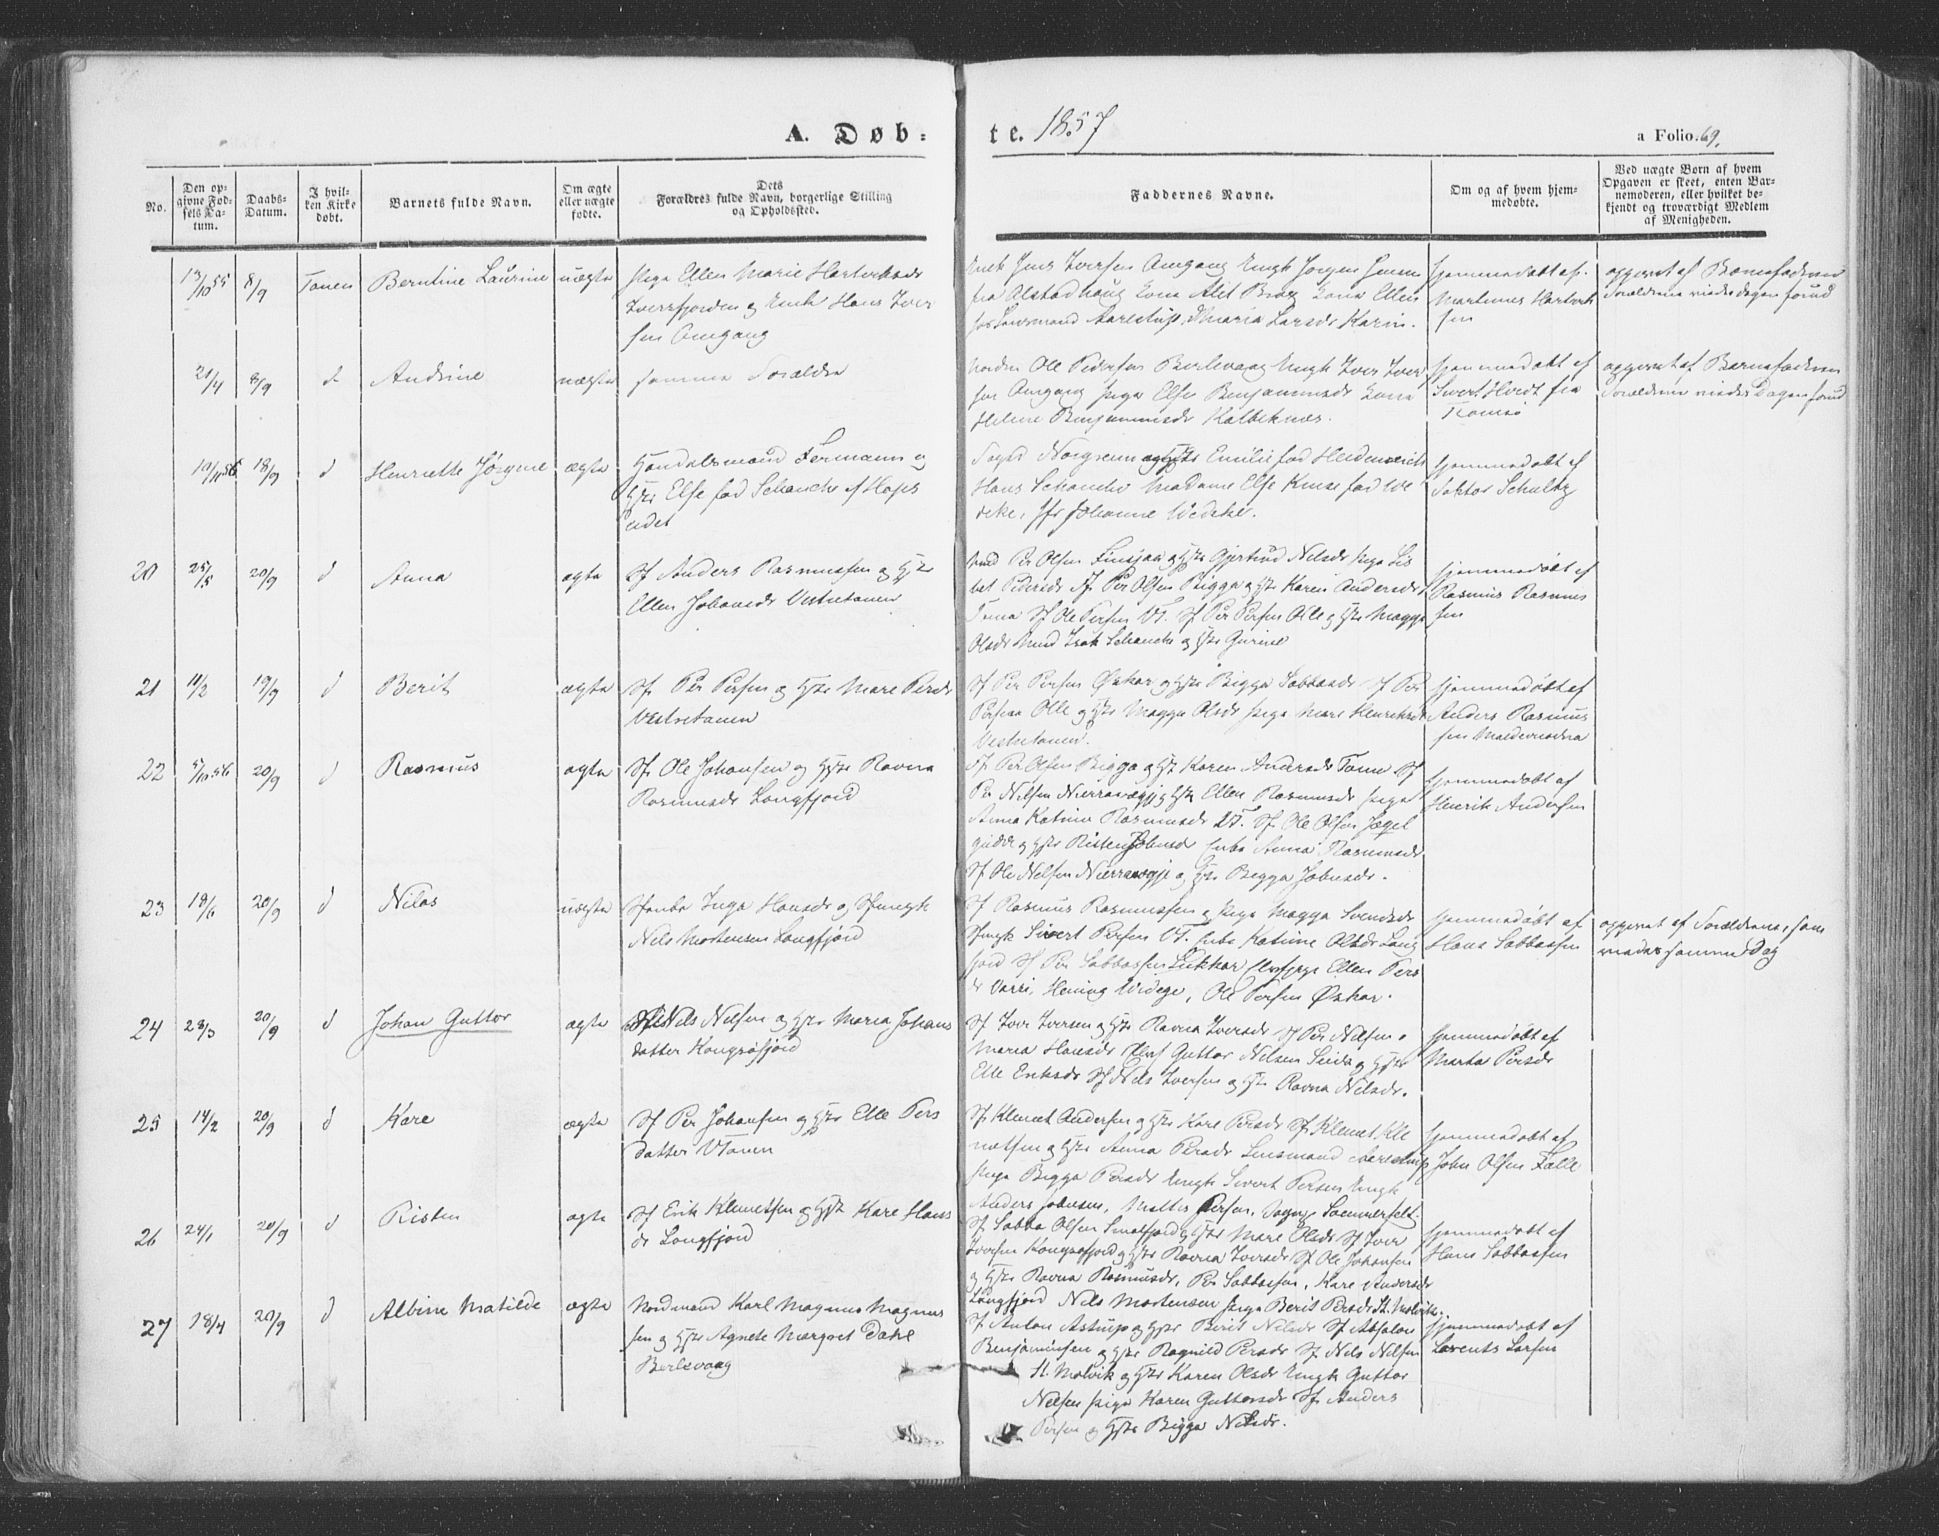 A. Døb:
te. 1857
a Folio. 69.
No.
Den op-
givne Fød-
sels Da-
tum.
Daabs-
Datum.
I hvil-
ken Kirke
døbt.
Barnets fulde Navn.
Om ægte
eller uægte
fødte.
Dets
Forældres fulde Navn, borgerlige Stilling
og Opholdssted.
Faddernes Navne.
Om og af hvem hjem-
medøbte.
Ved uægte Børn af hvem
Opgaven er skeet, enten Bar-
nemoderen, eller hvilket be-
kjendt og troværdigt Medlem
af Menigheden.
13/10 55 8/9 Tanen Berntine Laurine uægte
Pige Ellen Marie
og Ungk Hans Iver
sen Omgang
Ungk Jens Iversen Omgang Ungk Jørgen Jensen
fra Alstadhaug Kona Alet Kona Ellen
Maria Larsdr Karin.
Hjemmedøbt af
Martinus Hartvik
sen
opgivet af Barnefaderen
Forældrene viedes dagen forud
21/4 8/9 d Andrine uægte samme Forældre
Ole Pedersen Berlevaag Ungk Iver Iver
sen Omgang Pige Else Benjaminsdr Kona
Helene Benjaminsdr Kalbeknæs.
Hjemmedøbt af
Sivert Hvedt fra
Tromsø
opgivet af Barnefaderen
Forældrene viedes Dagen forud
10/11 56 18/9 d Henriette Jørgine ægte
Handelsmand Fermann og
Hstr Else fød Schanche af Hops
eidet
Foged Norgreen og Hstr Emilie fød
Hans Schanche Madame Else Kruse fød We
deke, Jfr Johanne Wedeke.
Hjemmedøbt af
Doktor Schultz
20 25/5 20/9 d Anna ægte
Sf Anders Rasmussen og Hstr
Ellen Johansdr Vestretanen
Per Olsen og Hstr Gjertrud Nilsdr Pige Lis
bet Pedersdr Sf Per Olsen Bigga og Hstr Karen Andersdr
Tana Sf Ole Persen VT. Sf Per Persen Olle og Hstr Magga
Olsdr Isak Schanche og Hstr Gurine
Hjemmedøbt af
Rasmus Rasmus
sen
21 11/2 19/9 d Berit ægte
Sf Per Persen og Hstr Mare Persdr
Vestretanen
Sf Per Persen Øskar og Hstr Bigga Sabbasdr Sf Per
Persen Olle og Hstr Magga Olsdr Pige Mari Henriksdr
Vestretanen.
Hjemmedøbt af
Anders Rasmus
sen
22 5/10 56 20/9 d Rasmus ægte
Sf Ole Johansen og Hstr Ravna
Rasmusdr Langfjord
Sf Per Olsen Bigga og Hst Karen Andersdr Tana Sf
Per Nilsen og Hstr Ellen Rasmusdr Pige
Anna Katrine Rasmusdr VT. Sf Ole Olsen
og Hstr Risten Johnsdr Enke Anna Rasmusdr
Sf Ole Nilsen og Hstr Bigga Johnsdr.
Hjemmedøbt af
Henrik Andersen
23 18/6 20/9 d Nilas uægte
Inga Hansdr og
Nils Mortensen Langfjord
Sf Rasmus Rasmussen og Pige Magga Svendsdr
Sivert Persen VT. Enke Katrine Olsdr Lang
fjord Sf Per Sabbasen Ellen Pers
dr Varri, Hening, Ole Persen Øskar.
Hjemmedøbt af
Hans Sabbassen
opgivet af Forældrene, som
viedes samme Dag
24 23/3 20/9 d Johan Guttor ægte
Nils Nilsen og Hstr Maria Johans
datter Kongsøfjord
Sf Iver Iversen og Hstr Ravna Iversdr Sf Per Nilsen o
Maria Hansdr Guttor Nilsen og Hstr
Elle Eriksdr Sf Nils Iversen og Hstr Ravna Nilsdr.
Hjemmedøbt af
Marta Persdr
25 14/2 20/9 d Kare ægte
Sf Per Johansen og Hstr Elle Pers
datter VTanen
Sf Klemet Andersen og Hstr Kare Persdr Sf Klemet Kle
metsen og Hstr Anna Persdr Lensmand Aarestrup
Pige Bigga Persdr Ungk Sivert Persen Ungk
Anders Johnsen, Mattis Persen, Sommerfelt.
Hjemmedøbt af
John Olsen
26 24/1 20/9 d Risten ægte
Sf Erik Klemetsen og Hst Kare Hans
dr Langfjord
Sf Sabba Olsen Smalfjord og Hstr Mare Olsdr Sf Iver
Iversen Kongsøfjord og Hstr Ravna Iversdr Sf Ole Johansen
og Hstr Ravna Rasmusdr, Per Sabbasen, Kare Andersdr
Langfjord Nils Mortensen Pige Berit Persdr
Hjemmedøbt af
Hans Sabbassen
27 18/4 20/9 d Albine Matilde ægte
Nordmand Karl Magnus Magnus
sen og Hstr Agnete Margret Dahl
Berlevaag
Sf Anton Astrup og Hstr Berit Nilsdr Sf Absalon
Benjaminsen og Hstr Ragnild Persdr Sf Nils Nilsen
St. Molvik og Hstr Karen Olsdr Ungk Guttor
Nilsen Pige Karen Guttorsdr Sf Anders
Persen og Hstr Bigga Nilsdr.
Hjemmedøbt af
Lorents Larsen